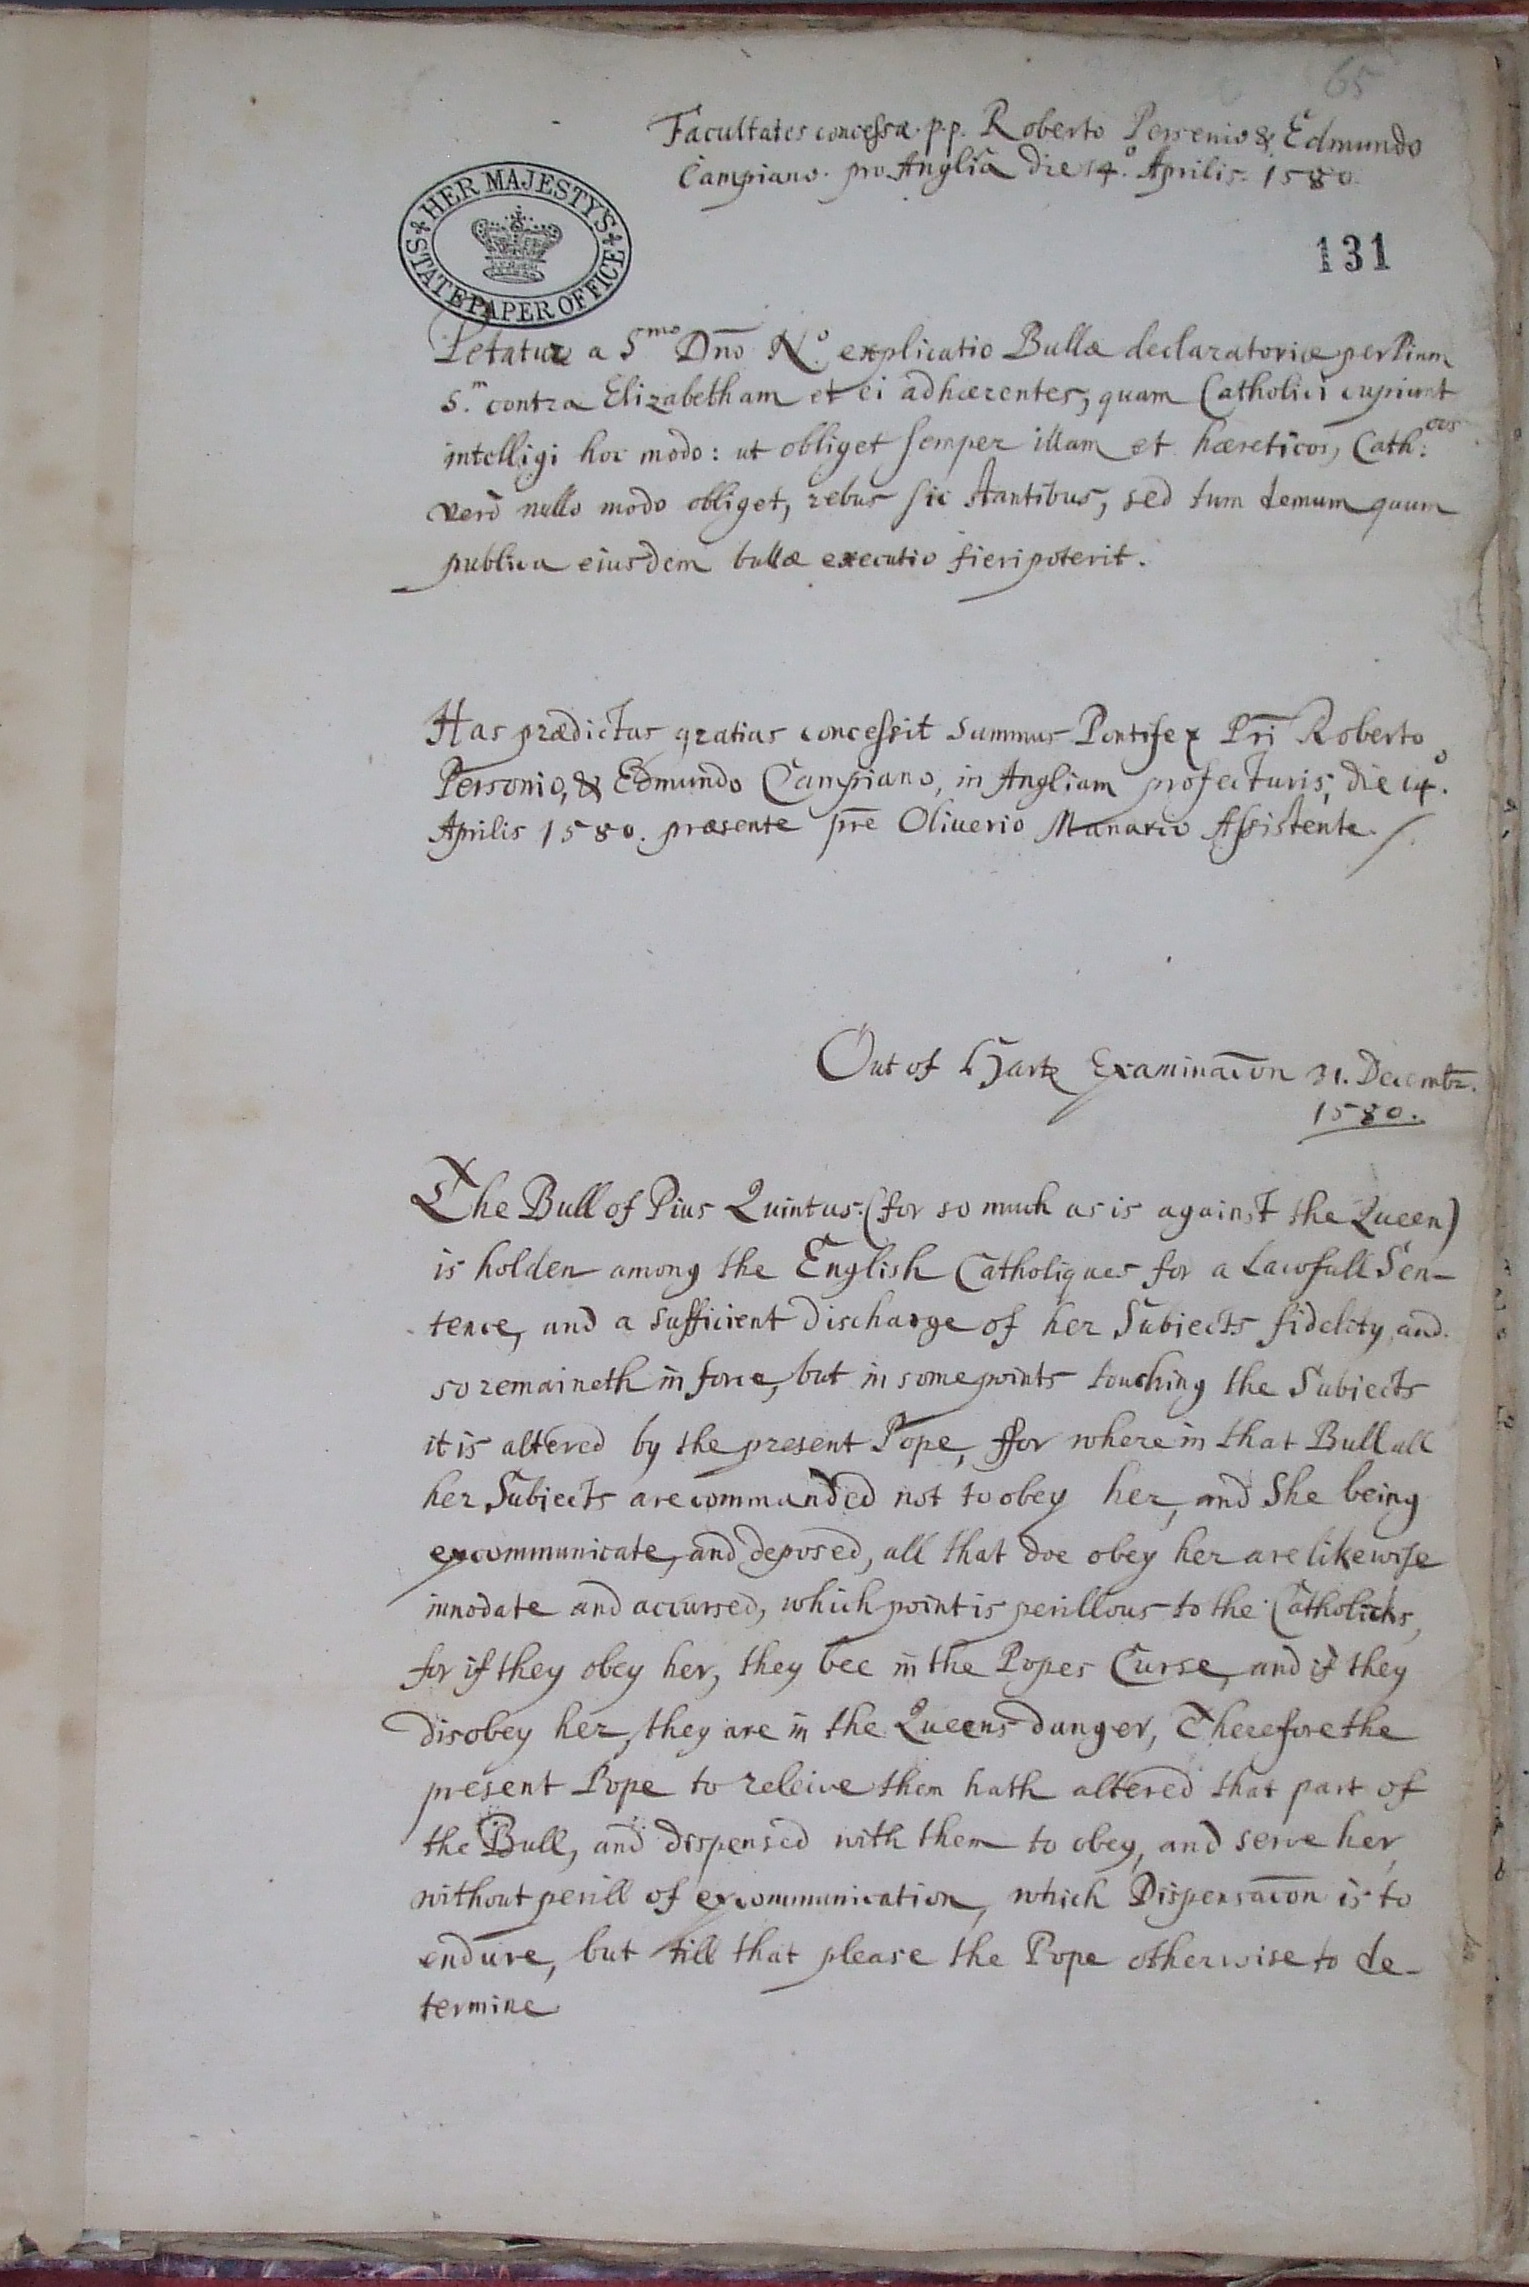 65
Facultates concessæ. p.p. Roberto Personio & Edmundo
Campiano. pro Anglia die 14.º Aprilis. 1580.
HER MAJESTY'S
STATE PAPER OFFICE
131
Petatur a S.mo Dño N.º explicatio Bullæ declaratoriæ per Pium
5.m contra Elizabetham et ei adhærentes, quam Catholici cupiunt
intelligi hoc modo: ut obliget semper illam et hæreticos, Cath:cos
verò nullo modo obliget, rebus sic stantibus, sed tum demum quum
publica eiusdem bullæ executio fieri poterit.
Has prædictas gratias concessit Summus Pontifex Pri Roberto
Personio, & Edmundo Campiano, in Angliam profecturis, die 14.º
Aprilis 1580. præsente pre Oliuerio Manarco Assistente.
Out of Harts Examinacon 31. Decembr.
1580.
The Bull of Pius Quintus: (for so much as is against the Queen)
is holden among the English Catholiques for a Lawfull Sen-
tence, and a sufficient discharge of her Subiects fidelity, and
so remaineth in force, but in some points touching the Subiects
it is altered by the present Pope, ffor where in that Bull all
her Subiects are commanded not to obey her, and She being
excommunicate, and deposed, all that doe obey her are likewise
innodate and accursed, which point is perillous to the Catholicks,
for if they obey her, they bee in the Popes Curse, and if they
disobey her, they are in the Queens danger, Therefore the
present Pope to releive them hath altered that part of
the Bull, and dispensed with them to obey, and serve her,
without perill of excommunication, which Dispensacon is to
endure, but till that please the Pope otherwise to de-
termine